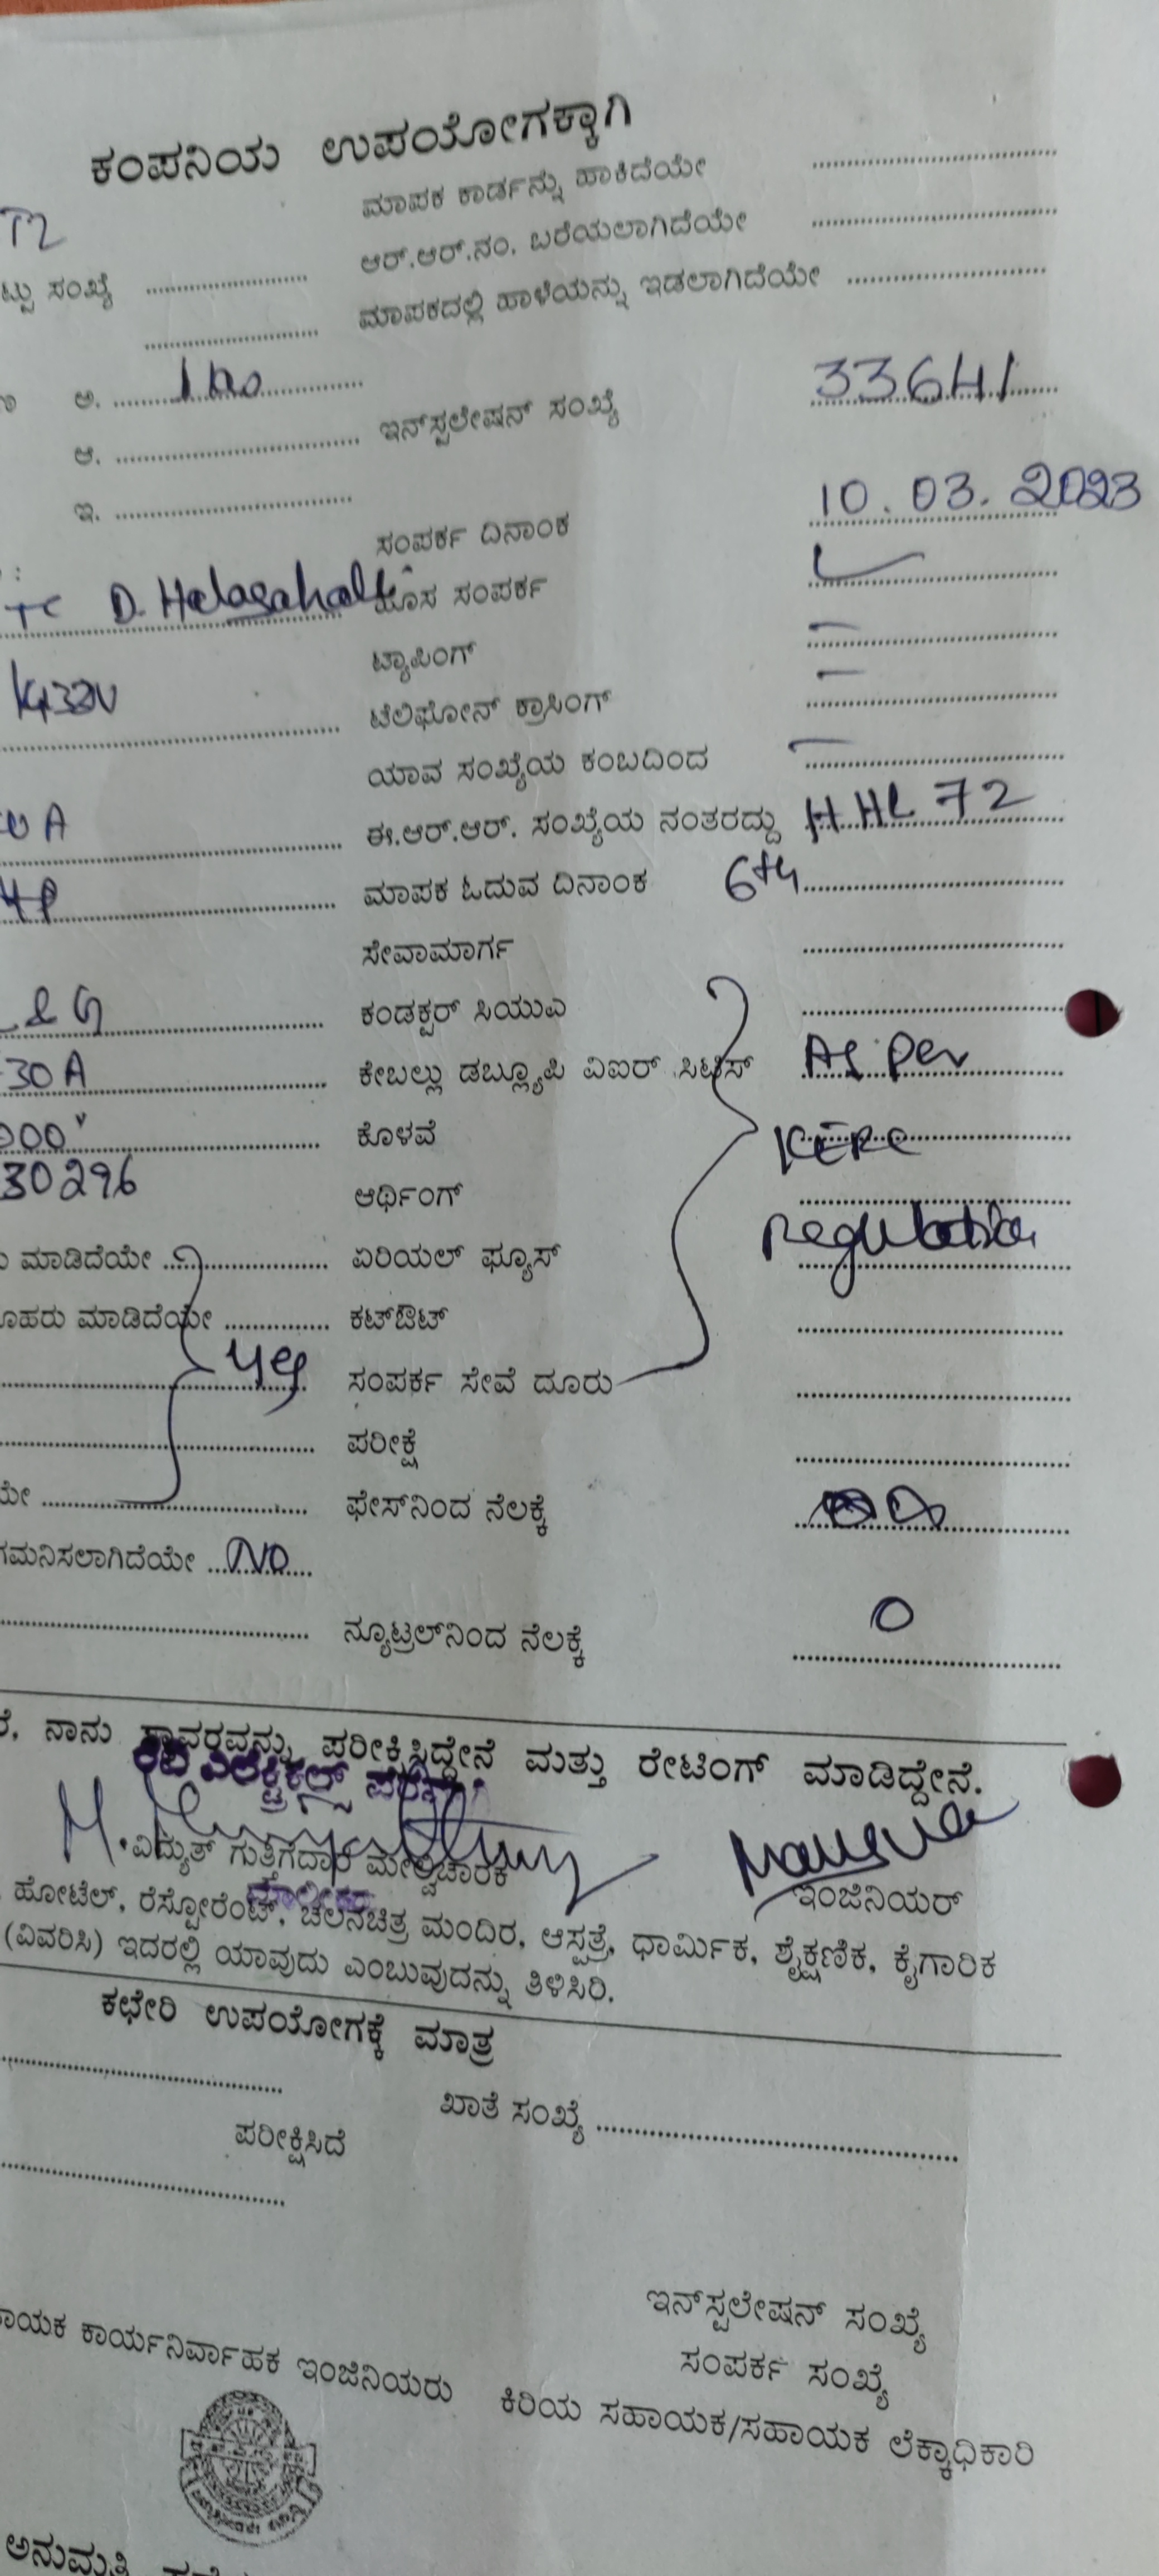 ಕಂಪನಿಯ ಉಪಯೋಗಕ್ಕಾಗಿ
ಮಾಪಕ ಕಾರ್ಡನ್ನು ಹಾಕಿದೆಯೇ
T2
ಆರ್.ಆರ್.ನಂ. ಬರೆಯಲಾಗಿದೆಯೇ
ಟ್ಟು ಸಂಖ್ಯೆ
ಮಾಪಕದಲ್ಲಿ ಹಾಳೆಯನ್ನು ಇಡಲಾಗಿದೆಯೇ
ಅ.
ಇನ್‌ಸ್ಟಲೇಷನ್ ಸಂಖ್ಯೆ 33641
ಆ.
ಇ.
ಸಂಪರ್ಕ ದಿನಾಂಕ 10.03.2023
D. Halasahalli ಹೊಸ ಸಂಪರ್ಕ
ಟ್ಯಾಪಿಂಗ್
ಟೆಲಿಫೋನ್ ಕ್ರಾಸಿಂಗ್
ಯಾವ ಸಂಖ್ಯೆಯ ಕಂಬದಿಂದ
ಈ.ಆರ್.ಆರ್. ಸಂಖ್ಯೆಯ ನಂತರದ್ದು HHL 72
ಮಾಪಕ ಓದುವ ದಿನಾಂಕ 6th
ಸೇವಾಮಾರ್ಗ
L&G ಕಂಡಕ್ಟರ್ ಸಿಯುಎ
30A ಕೇಬಲ್ಲು ಡಬ್ಲ್ಯೂಪಿ ವಿಐಆರ್ ಸಿಟಿಸ್ As per
ಕೊಳವೆ KERC
30296 ಆರ್ಥಿಂಗ್ regulation
ಮಾಡಿದೆಯೇ ಏರಿಯಲ್ ಫ್ಯೂಸ್
ಮೊಹರು ಮಾಡಿದೆಯೇ ಕಟ್‌ಔಟ್
yes ಸಂಪರ್ಕ ಸೇವೆ ದೂರು
ಪರೀಕ್ಷೆ
ಯೇ ಫೇಸ್‌ನಿಂದ ನೆಲಕ್ಕೆ
ಗಮನಿಸಲಾಗಿದೆಯೇ NO
ನ್ಯೂಟ್ರಲ್‌ನಿಂದ ನೆಲಕ್ಕೆ 0
ನಾನು ಸ್ಥಾವರವನ್ನು ಪರೀಕ್ಷಿಸಿದ್ದೇನೆ ಮತ್ತು ರೇಟಿಂಗ್ ಮಾಡಿದ್ದೇನೆ.
ವಿದ್ಯುತ್ ಗುತ್ತಿಗೆದಾರ ಮೇಲ್ವಿಚಾರಕ
ಇಂಜಿನಿಯರ್
ಹೋಟೆಲ್, ರೆಸ್ಟೋರೆಂಟ್, ಚಲನಚಿತ್ರ ಮಂದಿರ, ಆಸ್ಪತ್ರೆ, ಧಾರ್ಮಿಕ, ಶೈಕ್ಷಣಿಕ, ಕೈಗಾರಿಕ
(ವಿವರಿಸಿ) ಇದರಲ್ಲಿ ಯಾವುದು ಎಂಬುವುದನ್ನು ತಿಳಿಸಿರಿ.
ಕಛೇರಿ ಉಪಯೋಗಕ್ಕೆ ಮಾತ್ರ
ಖಾತೆ ಸಂಖ್ಯೆ
ಪರೀಕ್ಷಿಸಿದೆ
ಇನ್‌ಸ್ಟಲೇಷನ್ ಸಂಖ್ಯೆ
ಸಂಪರ್ಕ ಸಂಖ್ಯೆ
ಾಯಕ ಕಾರ್ಯನಿರ್ವಾಹಕ ಇಂಜಿನಿಯರು
ಕಿರಿಯ ಸಹಾಯಕ/ಸಹಾಯಕ ಲೆಕ್ಕಾಧಿಕಾರಿ
ಅನುಮತಿ